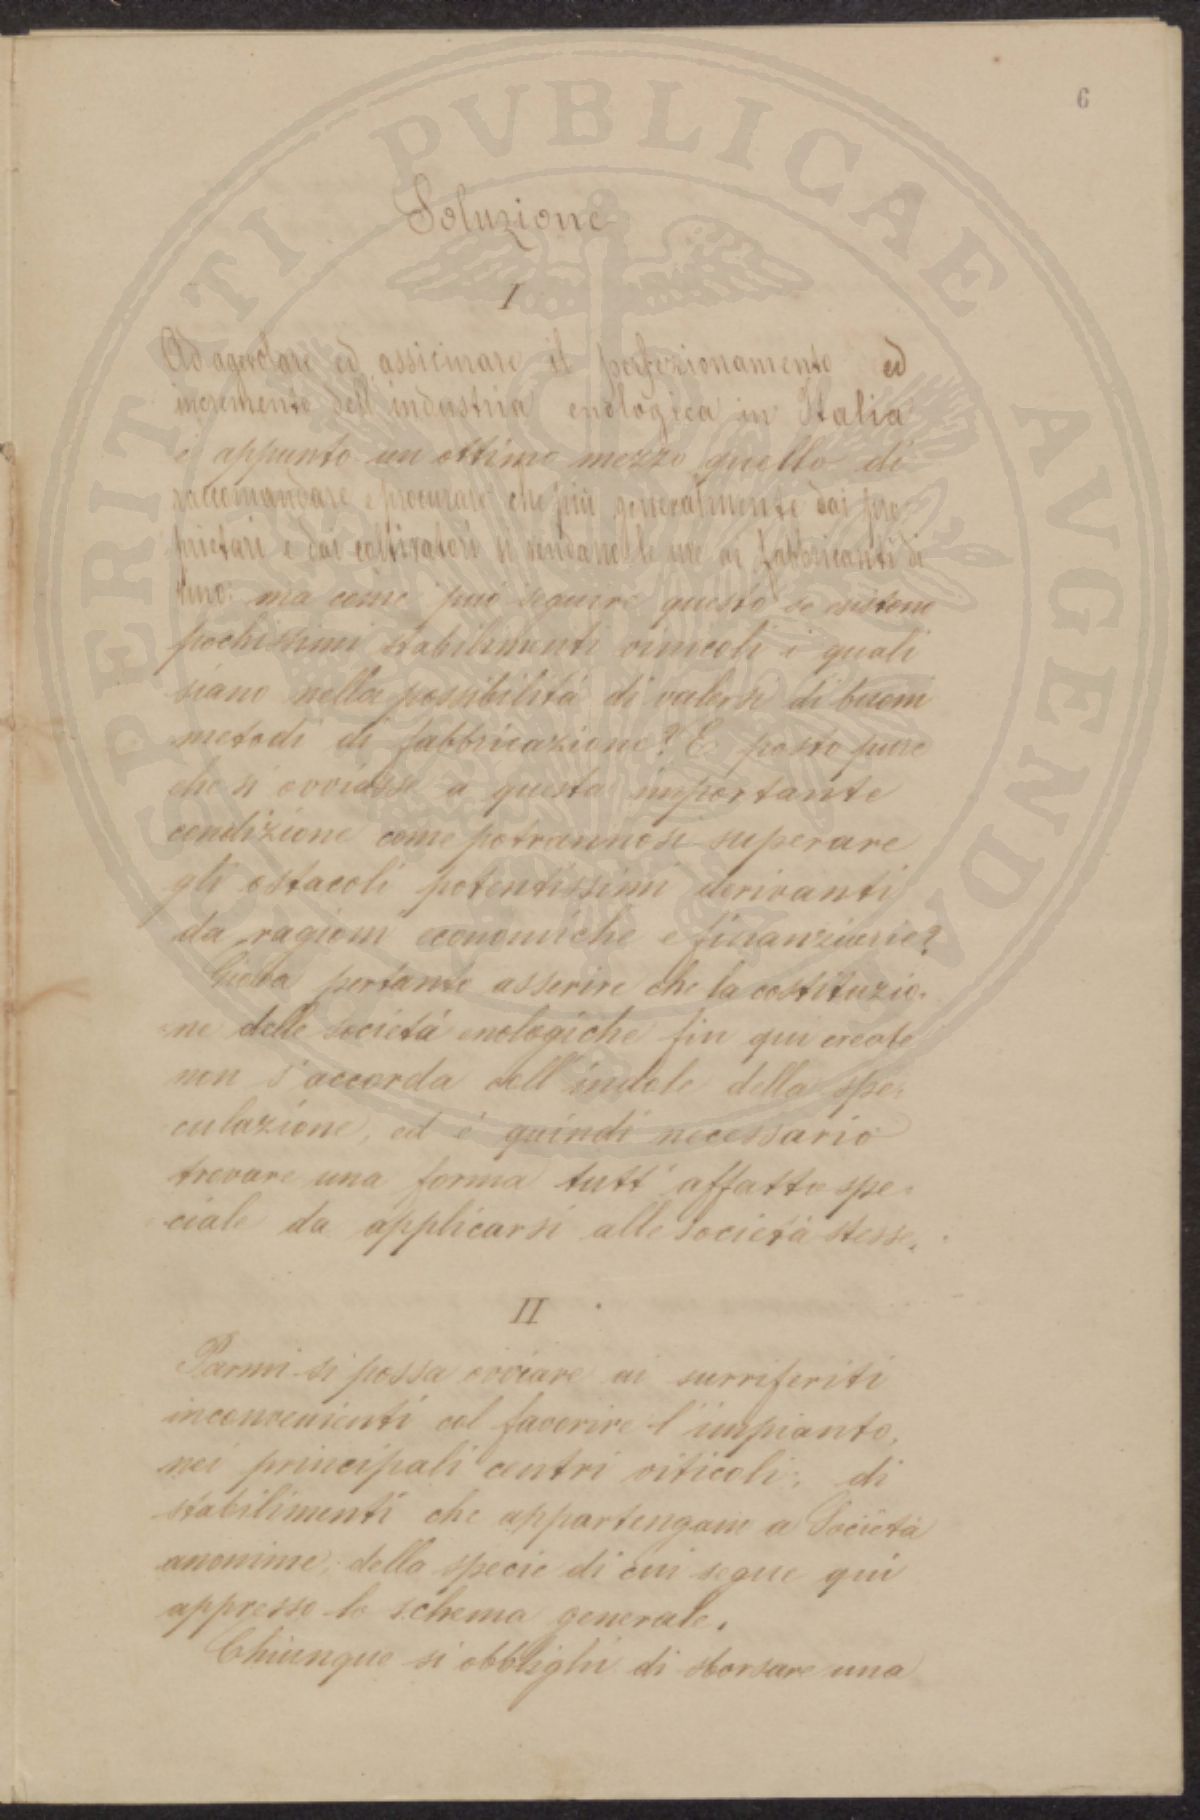 6
PROSPERITATI PVBLICAE AVGENDAE
Soluzione
I
Ad agevolare ed assicurare il perfezionamento ed
incremento dell'industria enologica in Italia
è appunto un ottimo mezzo quello di
raccomandare e procurare che più generalmente dai pro
prietari e dai coltivatori si vendano le uve ai fabbricanti di
vino: ma come può seguire questo se esistono
pochissimi stabilimenti vinicoli i quali
siano nella possibilità di valersi di buoni
metodi di fabbricazione? E posto pure
che si ovviasse a questa importante
condizione come potrannosi superare
gli ostacoli potentissimi derivanti
da ragioni economiche e finanziarie?
Giova pertanto asserire che la costituzio-
ne delle società enologiche fin qui create
non s'accorda coll'indole della spe-
culazione, ed è quindi necessario
trovare una forma tutt'affatto spe-
ciale da applicarsi alle società stesse.
II
Parmi si possa ovviare ai surriferiti
inconvenienti col favorire l'impianto,
nei principali centri viticoli, di
stabilimenti che appartengano a Società
anonime della specie di cui segue qui
appresso lo schema generale.
Chiunque si obblighi di sborsare una